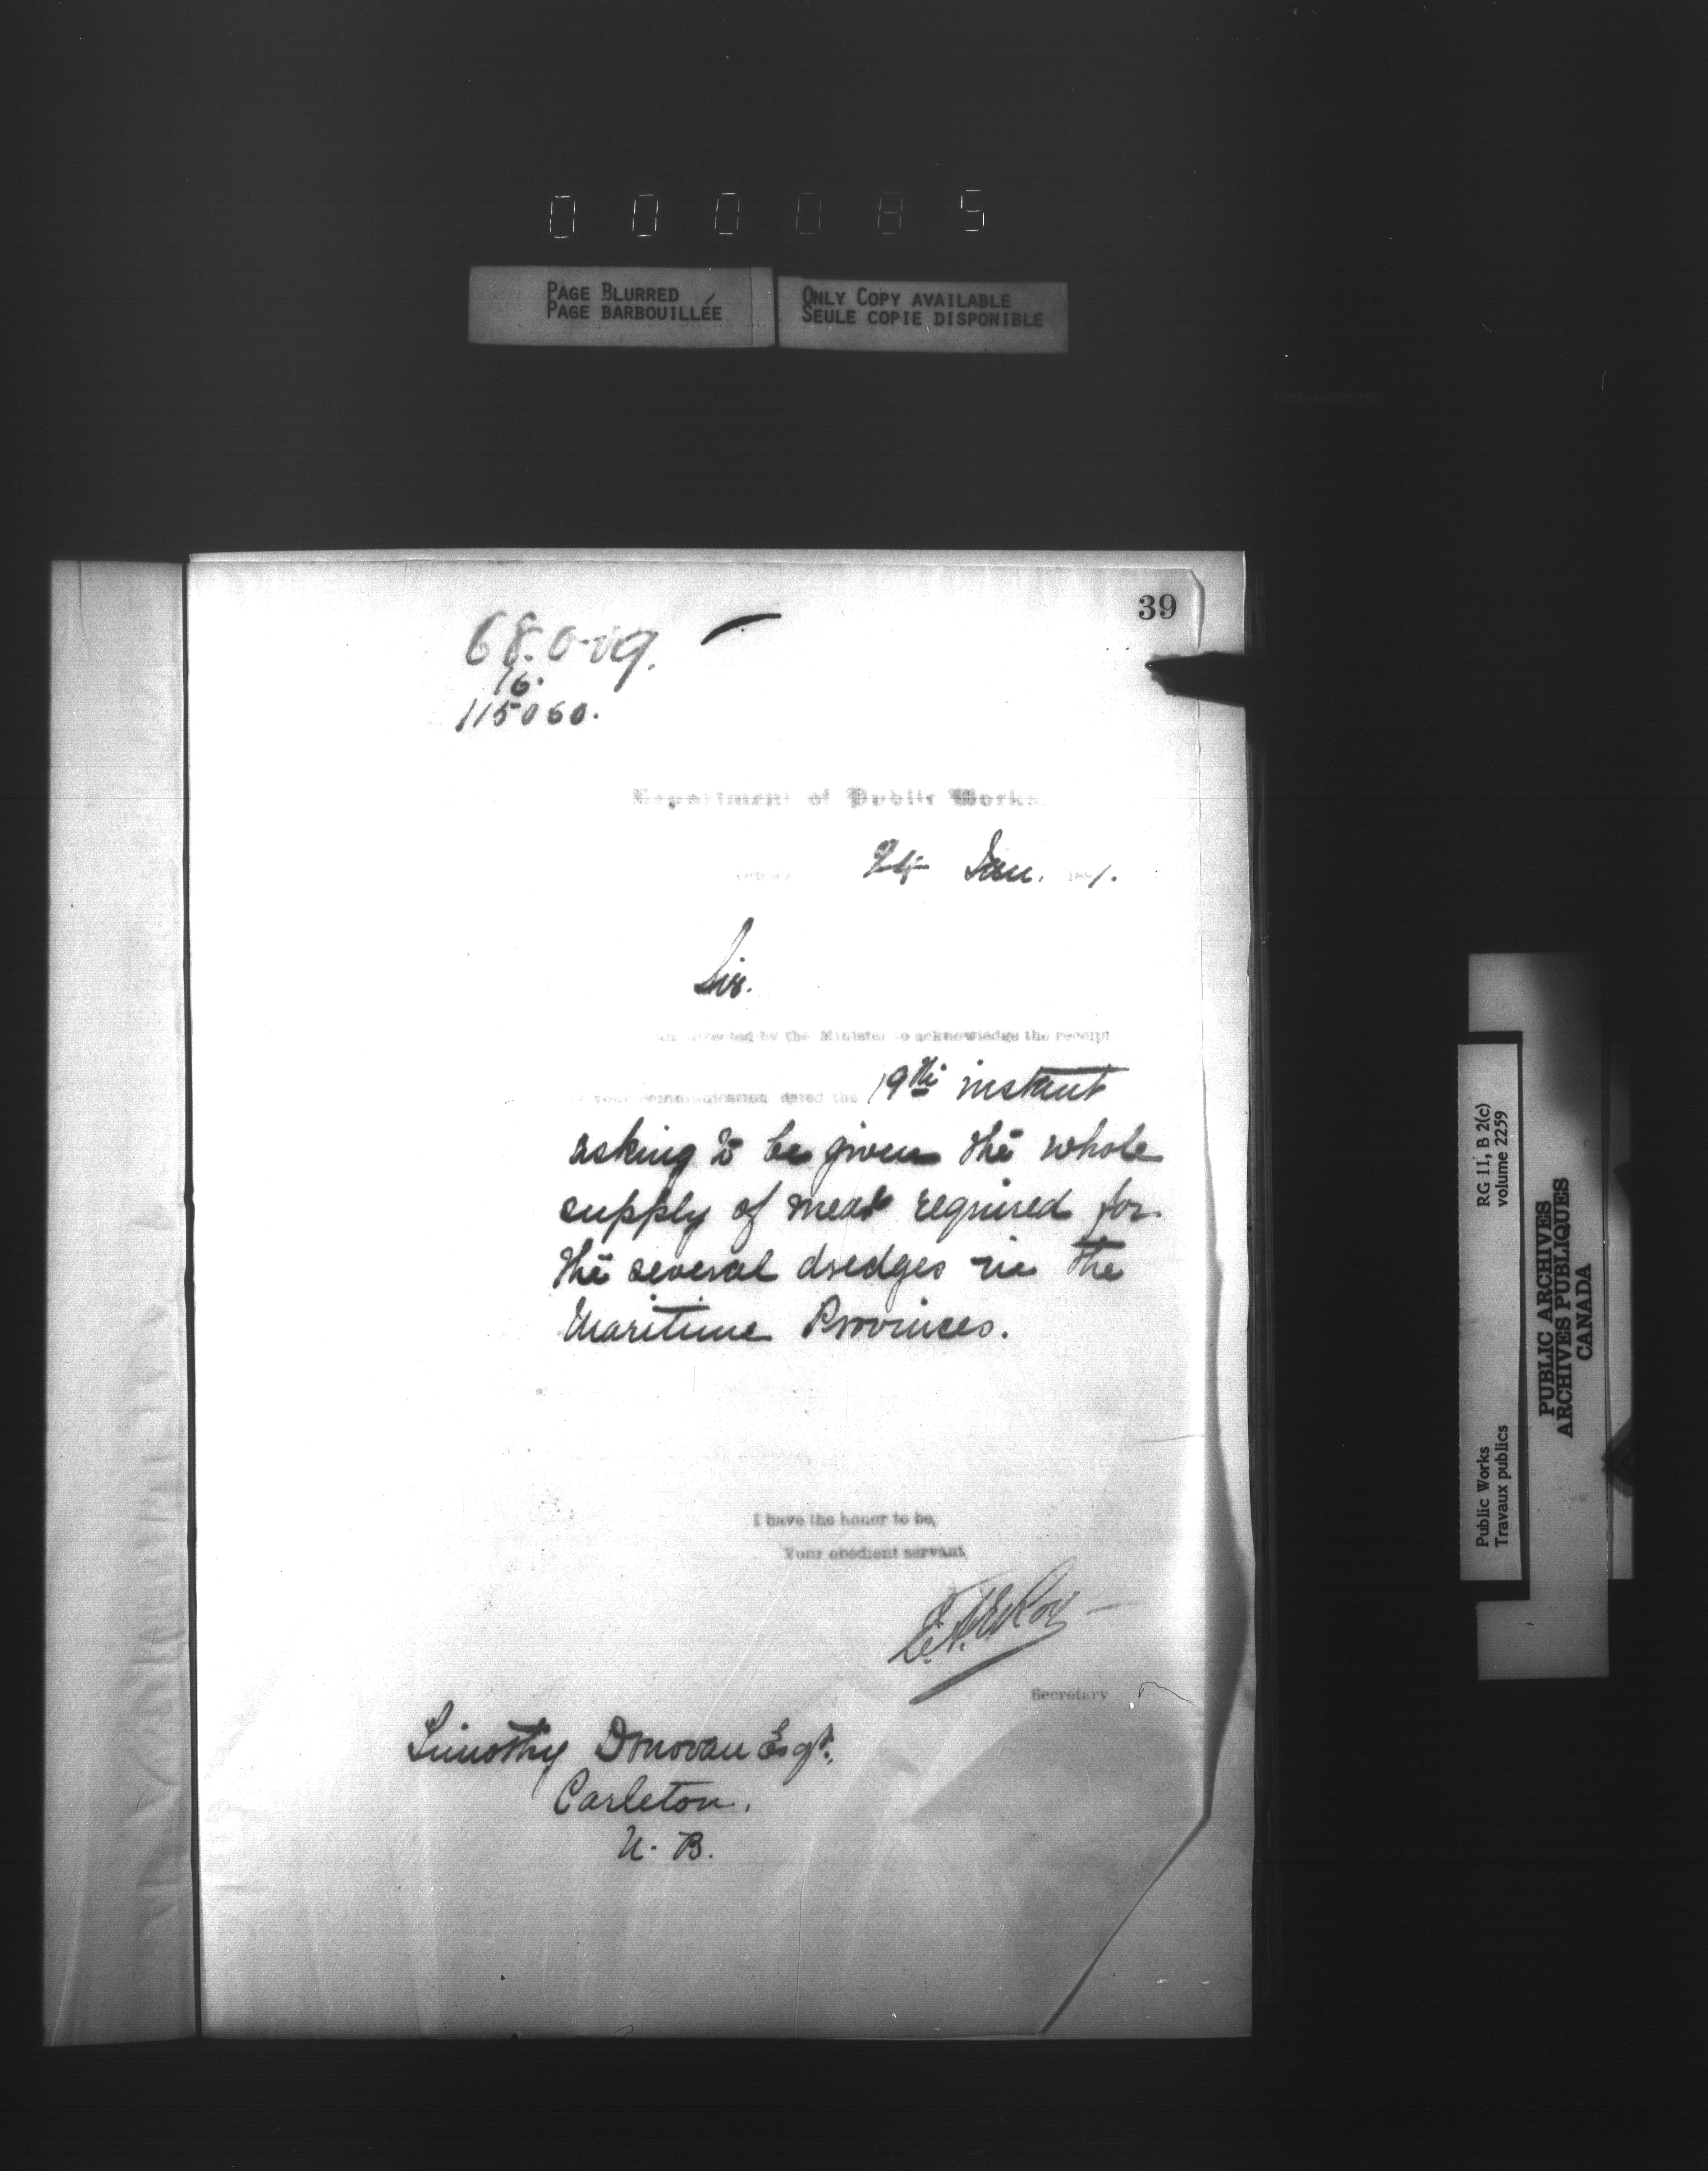 000085
PAGE BLURRED
PAGE BARBOUILLÉE
ONLY COPY AVAILABLE
SEULE COPIE DISPONIBLE
39
16.
115060.
Department of Public Works.
24 Jan. 1.
Sir.
directed by the Minister to acknowledge the receipt
your communication dated the 19th instant
asking to be given the whole
supply of meat required for
the several dredges in the
Maritime Provinces.
I have the honor to be,
Your obedient servant
Secretary
Timothy Donovan Esqr.,
Carleton.
N. B.
Public Works
Travaux publics
RG 11, B 2(c)
volume 2259
PUBLIC ARCHIVES
ARCHIVES PUBLIQUES
CANADA